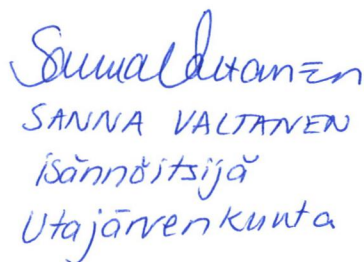 Sanna Valtanen
SANNA VALTANEN
isännöitsijä
Utajärven kunta